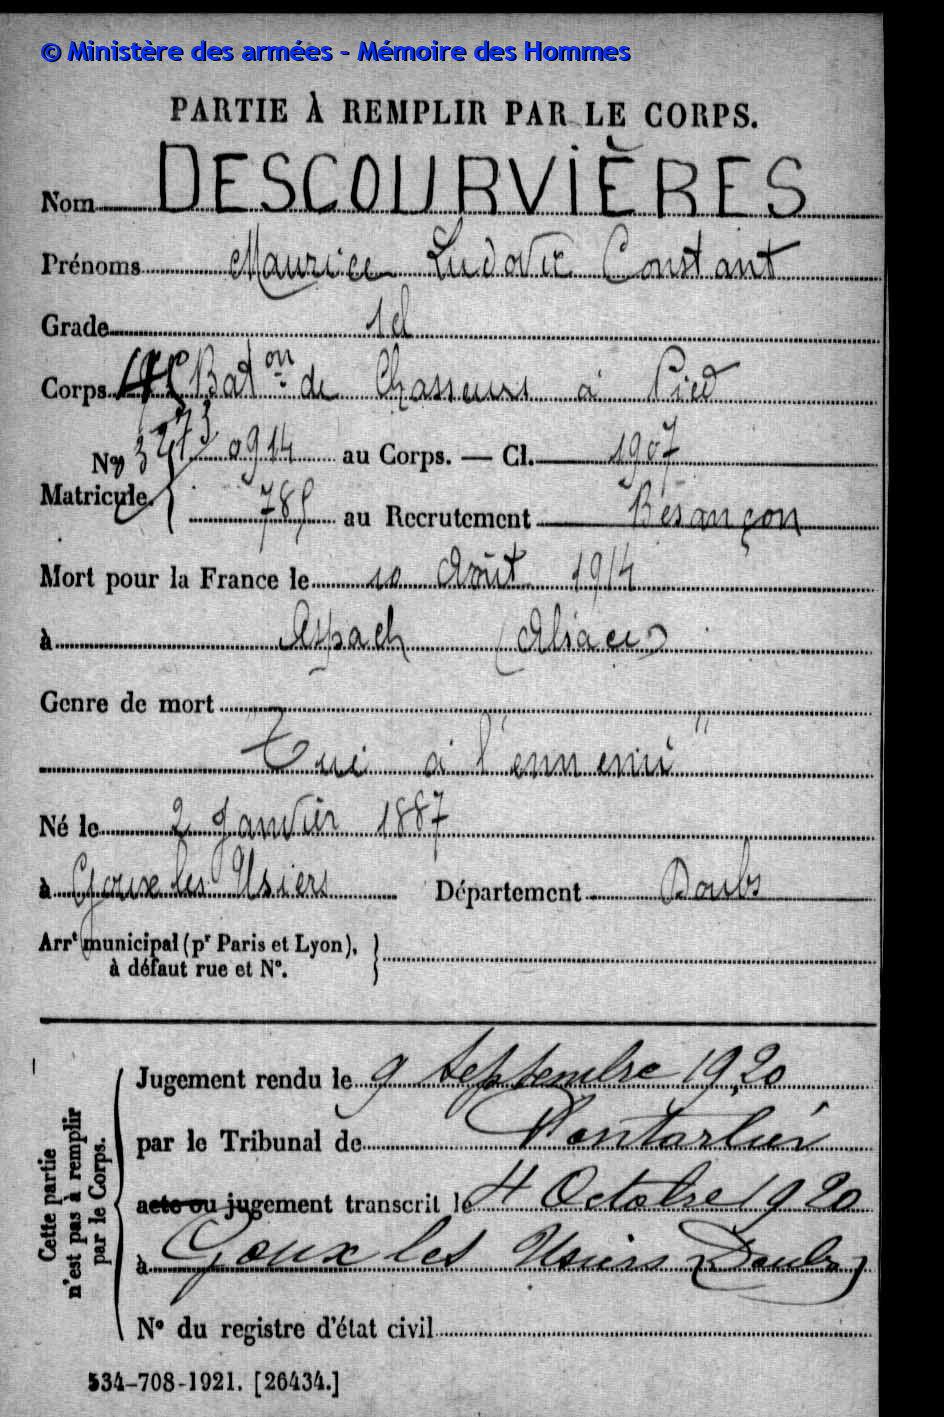 © Ministère des armées - Mémoire des Hommes
PARTIE À REMPLIR PAR LE CORPS.
Nom DESCOURVIÈRES
Prénoms Maurice Ludovic Constant
Grade 1cl
Corps Bat on de Chasseurs à Pied
No 0914 au Corps. — Cl. 1907
Matricule. 785 au Recrutement Besançon
Mort pour la France le 10 Août 1914
à Aspach (Alsace)
Genre de mort
"Tué à l'ennemi"
Né le 2 Janvier 1887
à Goux les Usiers Département Doubs
Arrt municipal (pr Paris et Lyon),
à défaut rue et N°.
Cette partie
n'est pas à remplir
par le Corps.
Jugement rendu le 9 Septembre 1920
par le Tribunal de Pontarlier
acte ou jugement transcrit le 4 Octobre 1920
à Goux les Usiers (Doubs)
N° du registre d'état civil
534-708-1921. [26434.]